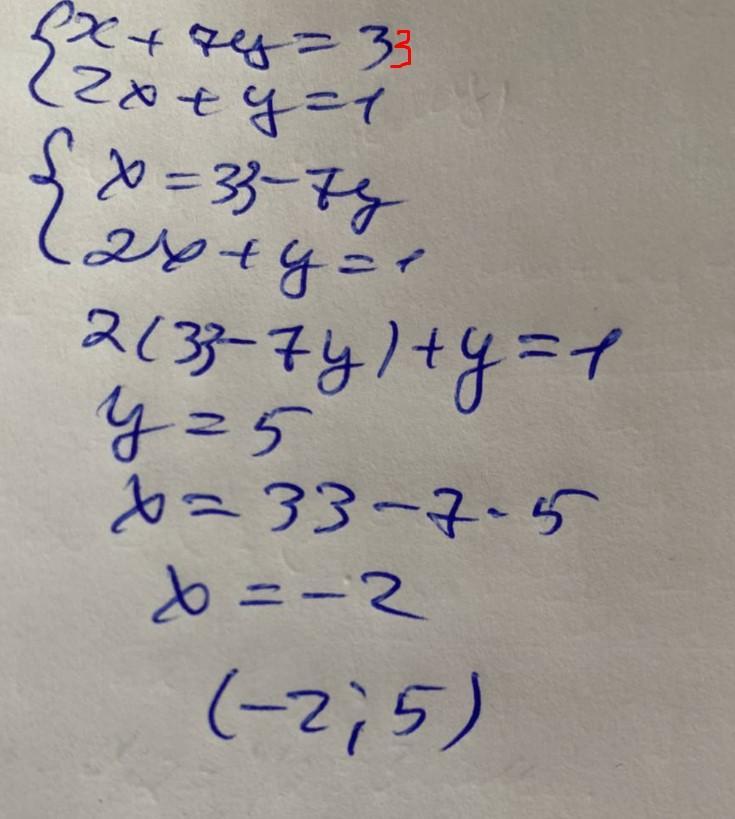 { x + 7y = 33
2x + y = 1
{ x = 33 - 7y
2x + y = 1
2(33 - 7y) + y = 1
y = 5
x = 33 - 7 · 5
x = -2
(-2; 5)